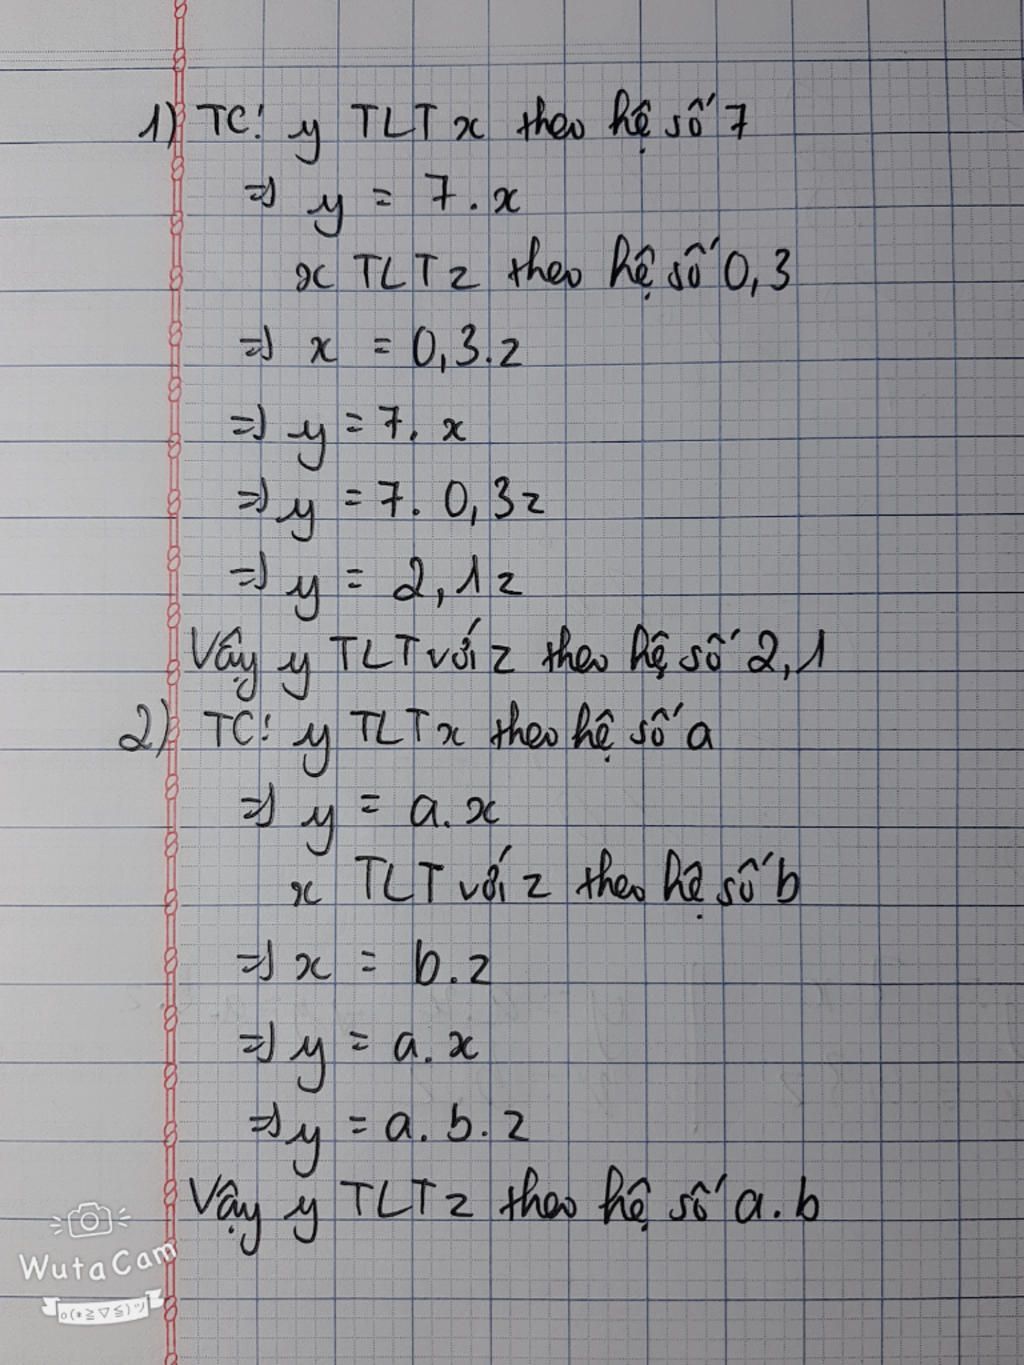 1) TC: y TLT x theo hệ số 7
=> y = 7.x
x TLT z theo hệ số 0,3
=> x = 0,3.z
=> y = 7. x
=> y = 7. 0,3z
=> y = 2,1z
Vậy y TLT với z theo hệ số 2,1
2) TC: y TLT x theo hệ số a
=> y = a.x
x TLT với z theo hệ số b
=> x = b.z
=> y = a.x
=> y = a.b.z
Vậy y TLT z theo hệ số a.b
WutaCam
o(*≧▽≦)ツ